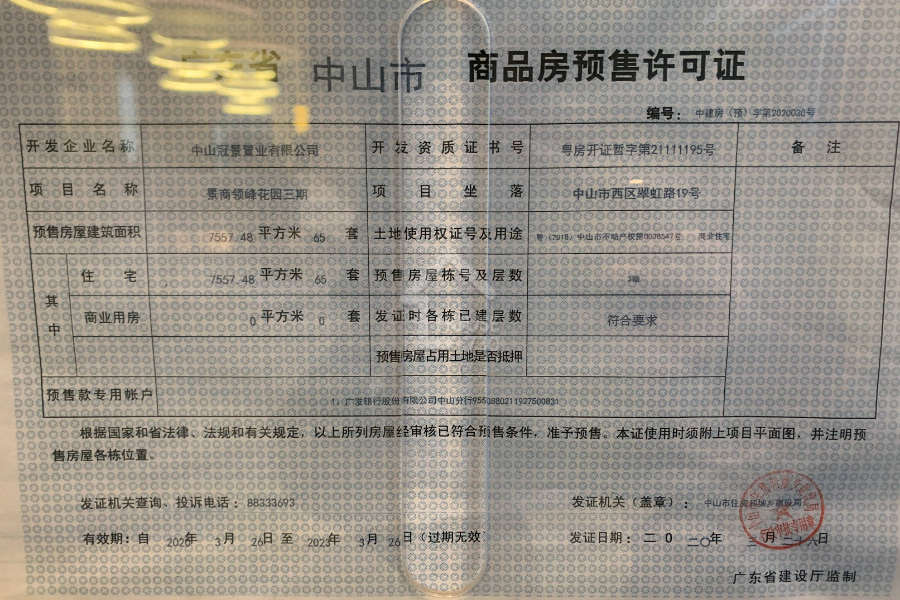 广东省 中山市 商品房预售许可证
编号： 中建房（预）字第2020030号
开发企业名称 中山冠景置业有限公司 开发资质证书号 粤房开证暂字第21111195号 备注
项目名称 景商领峰花园三期 项目坐落 中山市西区翠虹路19号
预售房屋建筑面积 7557.48 平方米 65 套 土地使用权证号及用途 粤（2018）中山市不动产权第0038547号 商业住宅
其中 住宅 7557.48 平方米 65 套 预售房屋栋号及层数
商业用房 0 平方米 0 套 发证时各栋已建层数 符合要求
预售房屋占用土地是否抵押
预售款专用帐户 1、广发银行股份有限公司中山分行9550880211927500831
根据国家和省法律、法规和有关规定，以上所列房屋经审核已符合预售条件，准予预售。本证使用时须附上项目平面图，并注明预
售房屋各栋位置。
发证机关查询、投诉电话：88333693 发证机关（盖章）：中山市住房和城乡建设局
有效期：自 2020年 3月 26日 至 2023年 3月 26日（过期无效） 发证日期：二0二〇年三月二十六日
广东省建设厅监制